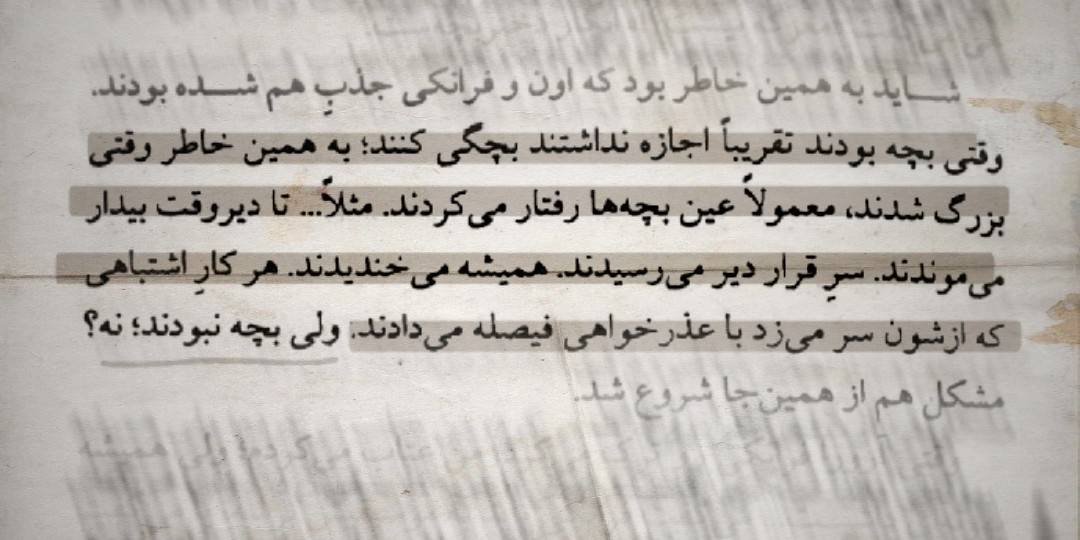 شاید به همین خاطر بود که اون و فرانکی جذبِ هم شده بودند.
وقتی بچه بودند تقریباً اجازه نداشتند بچگی کنند؛ به همین خاطر وقتی
بزرگ شدند، معمولاً عین بچه‌ها رفتار می‌کردند. مثلاً... تا دیروقت بیدار
می‌موندند. سرِ قرار دیر می‌رسیدند. همیشه می‌خندیدند. هر کارِ اشتباهی
که ازشون سر می‌زد با عذرخواهی فیصله می‌دادند. ولی بچه نبودند؛ نه؟
مشکل هم از همین‌جا شروع شد.
می‌کردم؛ ولی همیشه